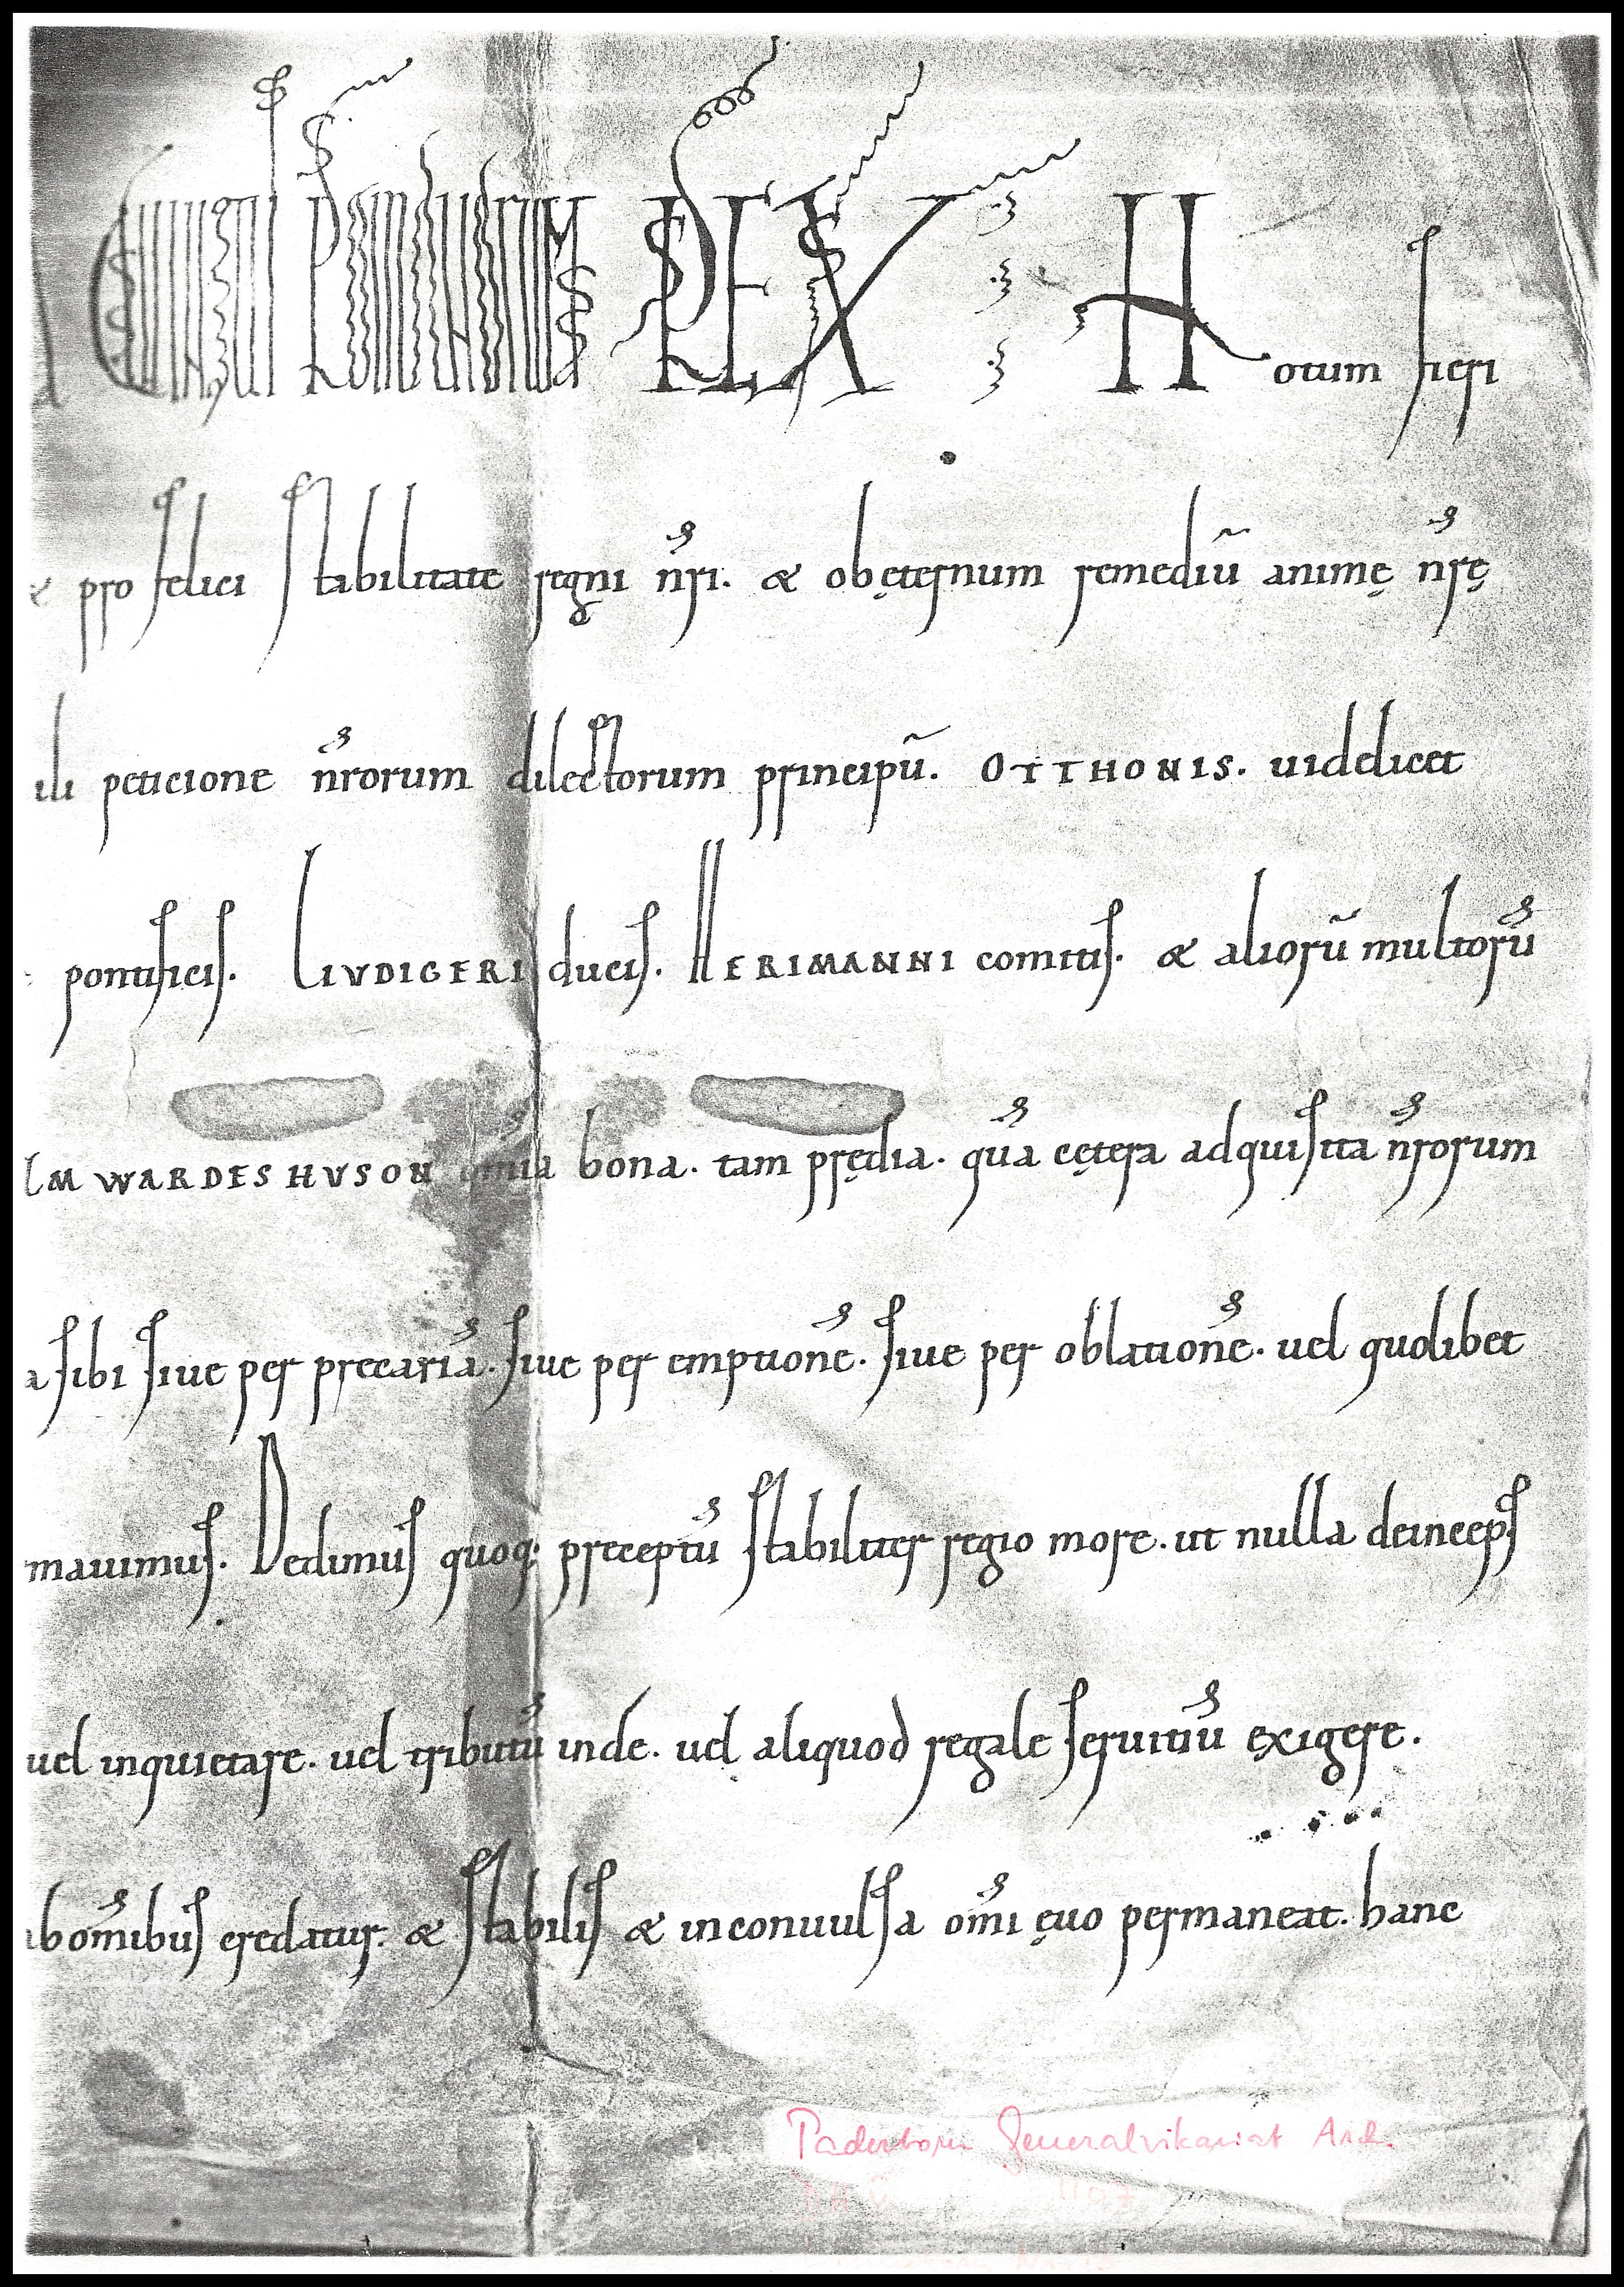 REX H otum fieri
& pro felici stabilitate regni nr̄i. & ob ęternum remediū animę nr̄ę
peticione nr̄orum dilectorum principū. OTTHONIS. uidelicet
pontificis. LIVDIGERI ducis. HERIMANNI comitis. & aliorū multorū
IM WARDESHVSON om̄ia bona. tam prędia. quā cętera adquisita nr̄orum
a sibi siue per precariā. siue per emptionē. siue per oblationē. uel quolibet
mauimus. Dedimus quoq; preceptū stabiliter regio more. ut nulla deinceps
uel inquietare. uel tributū inde. uel aliquod regale seruitiū exigere.
ab om̄ibus credatur. & stabilis & inconuulsa om̄i ęuo permaneat. hanc
Paderborn Generalvikariat Arch.